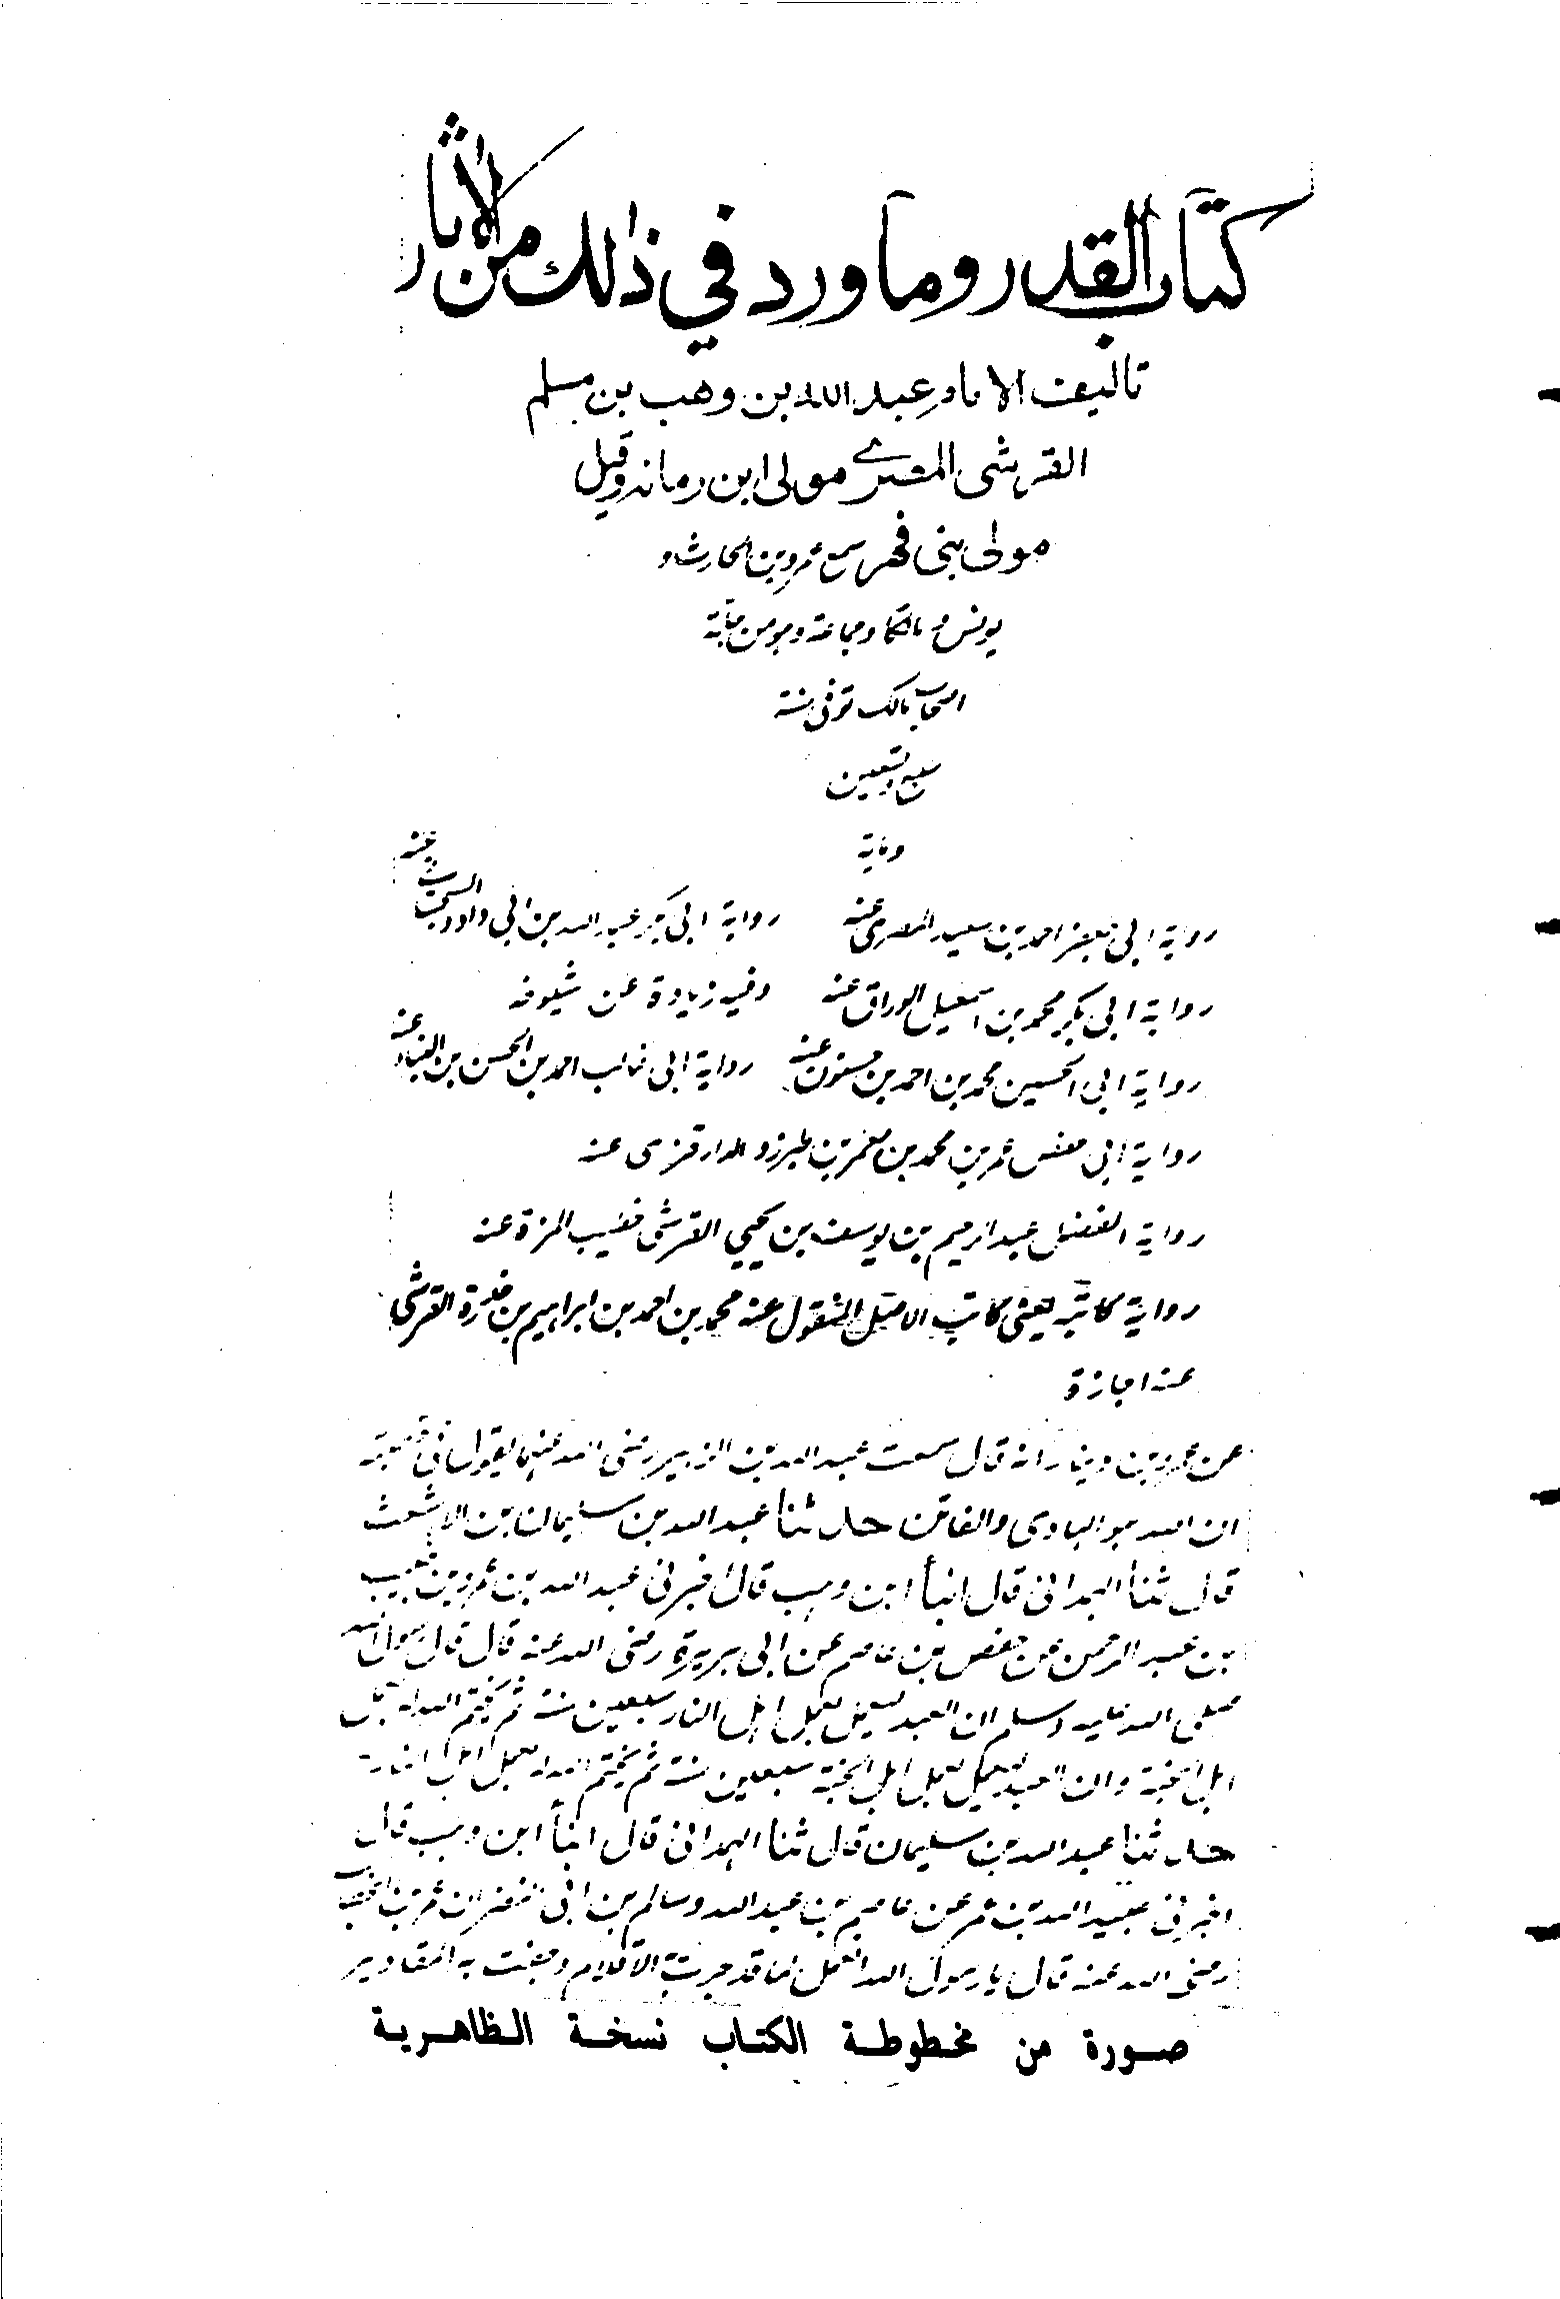 كتاب القدر وما ورد في ذلك من الاثار
تاليف الامام عبد الله بن وهب بن مسلم
القرشى المصرى مولى ابن رمانه وقيل
مولى بنى فهر سمع عمرو بن الحارث و
يونس و مالكا وجماعة وهو من جلة
اصحاب مالك توفى سنة
سبع وتسعين
وماية
رواية ابى جعفر احمد بن سعيد المصرى عنه رواية ابى بكر عبد الله بن ابى داود السجستانى عنه
رواية ابى بكر محمد بن اسمعيل الوراق عنه وفيه زيادة عن شيوخه
رواية ابى الحسين محمد بن احمد بن حسنون عنه رواية ابى غالب احمد بن الحسن بن البناء عنه
رواية ابى حفص عمر بن محمد بن معمر بن طبرزد الدارقزى عنه
رواية الفضل عبد الرحيم بن يوسف بن يحيي القرشى خطيب المزة عنه
رواية كاتبه يعنى كاتب الاصل المنقول عنه محمد بن احمد بن ابراهيم بن حيدرة القرشى
عنه اجازة
عن عمرو بن دينار انه قال سمعت عبد الله بن الزبير رضى الله عنهما يقول فى خطبته
ان الله هو الهادى والفاتن حدثنا عبد الله بن سليمان بن الاشعث
قال ثنا الهمدانى قال انبأ ابن وهب قال اخبرنى عبد الله بن عمر عن خبيب
بن عبد الرحمن عن حفص بن عاصم عن ابى هريرة رضى الله عنه قال قال رسول الله
صلى الله عليه وسلم ان العبد ليعمل بعمل اهل النار سبعين سنة ثم يختم الله له بعمل
اهل الجنة وان العبد ليعمل بعمل اهل الجنة سبعين سنة ثم يختم الله له بعمل اهل النار
حدثنا عبد الله بن سليمان قال ثنا الهمدانى قال انبأ ابن وهب قال
اخبرنى عبيد الله بن عمر عن عاصم بن عبيد الله وسالم بن ابى النضر ان عمر بن الخطاب
رضى الله عنه قال يا رسول الله انعمل لما قد جرت به الاقلام وجفت به المقادير
صورة من مخطوطة الكتاب نسخة الظاهرية